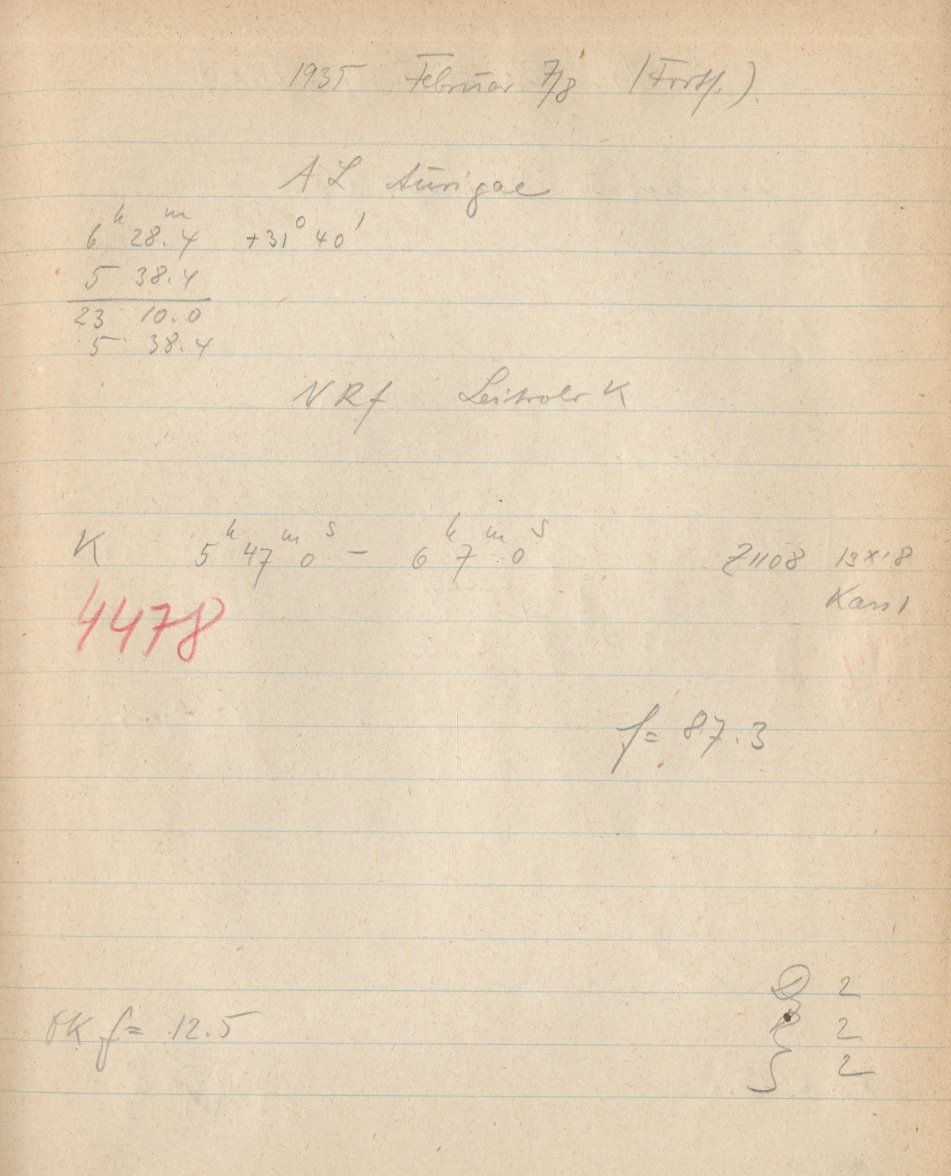 1935 Februar 7/8 (Forts.)
AL Aurigae
6h 28.4m +31° 40'
5 38.4
23 10.0
5 38.4
NRf Leitrohr K
K 5h 47m 0s – 6h 7m 0s Z1108 13x18
4478
f = 87.3
2
f = 12.5 2
2